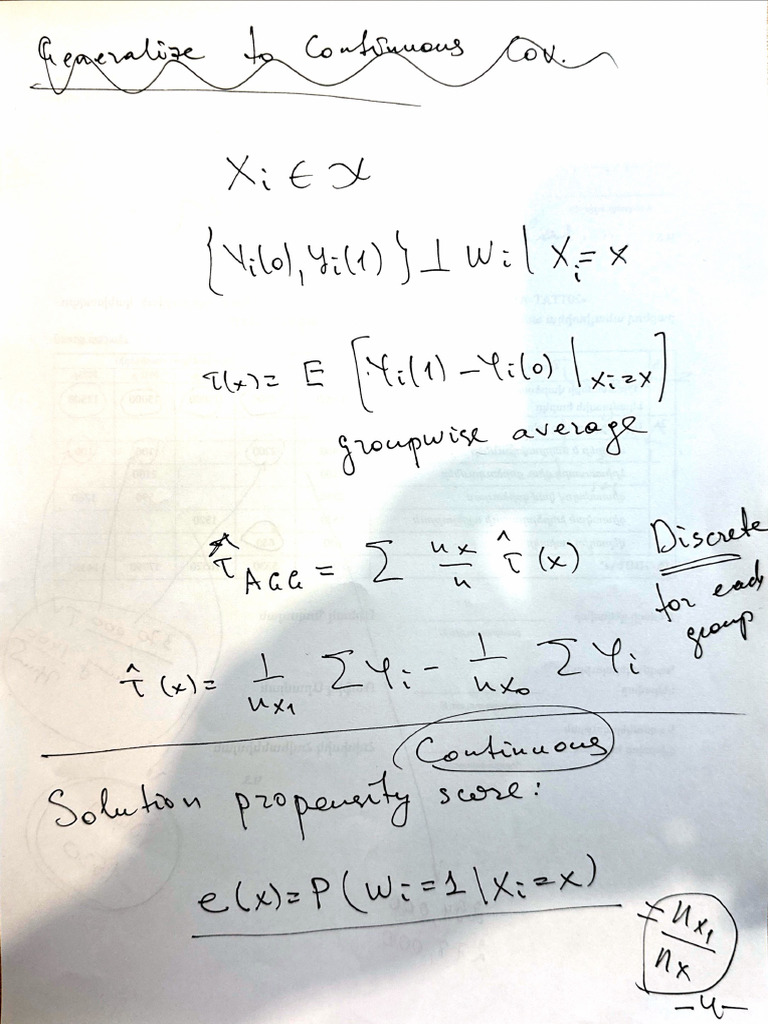 Generalize to Continuous Cov.
Xi ∈ 𝒳
{Yi(0), Yi(1)} ⊥ Wi | Xi = x
τ(x) = E [Yi(1) − Yi(0) | Xi=x]
groupwise average
τ̂AGG = ∑ nx/n τ̂(x) Discrete
for each
group
τ̂(x) = 1/nx1 ∑ Yi − 1/nx0 ∑ Yi
Continuous
Solution propensity score:
e(x) = P(Wi = 1 | Xi = x)
= nx1/nx
-4-